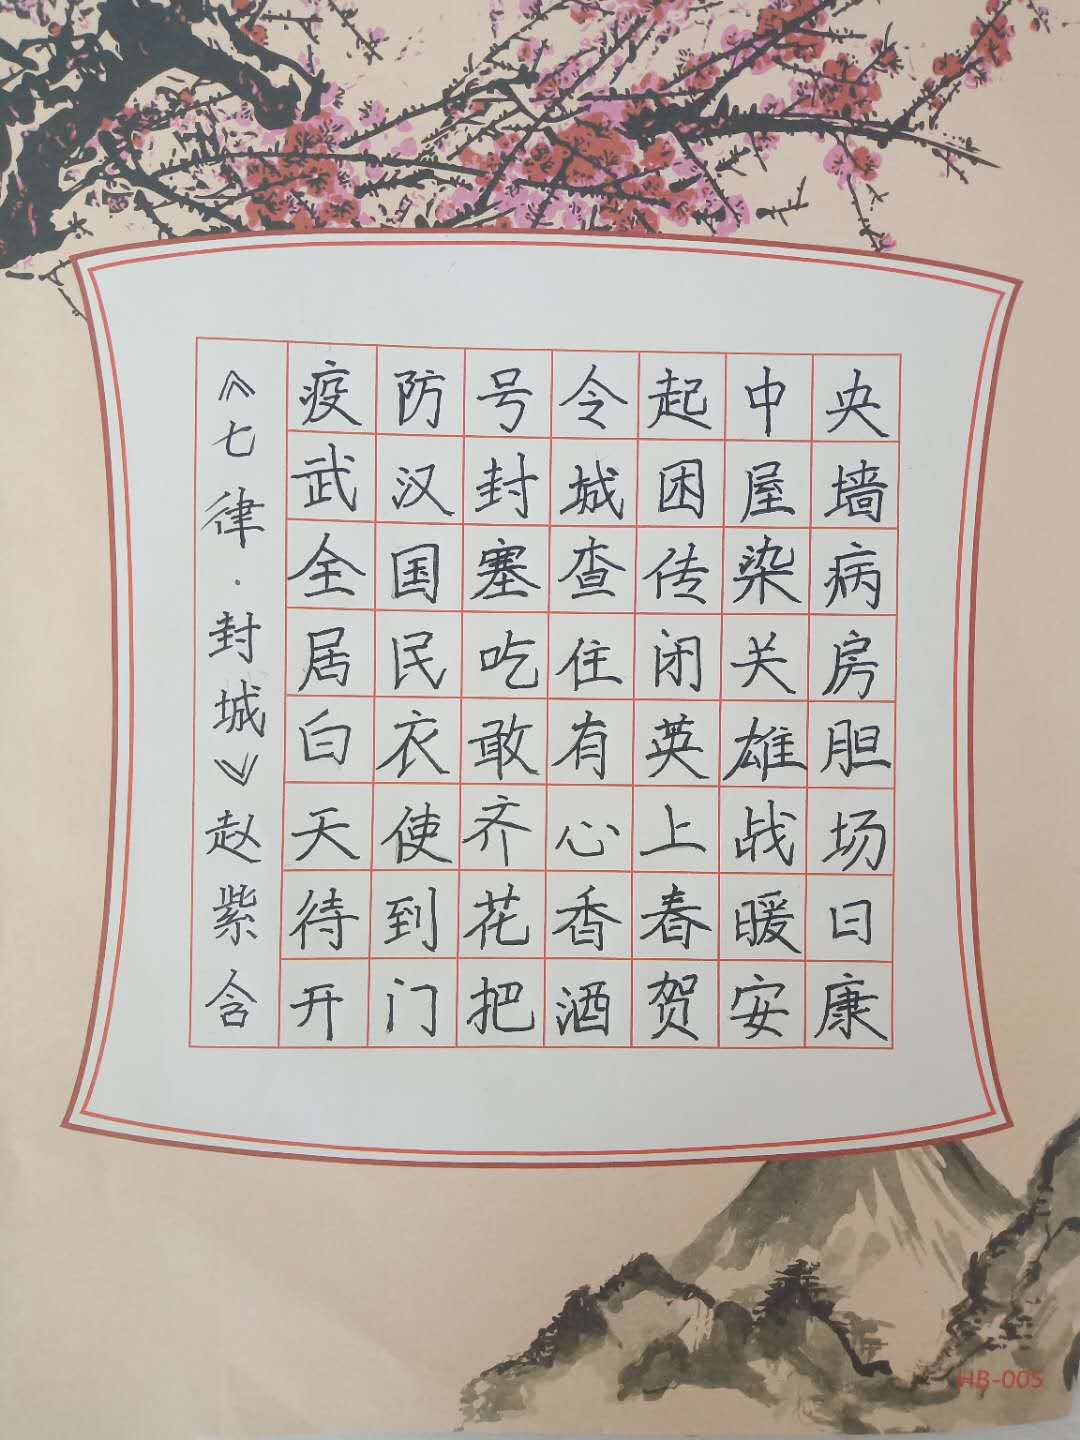 《七律·封城》赵紫含
疫防号令起中央
武汉封城困屋墙
全国塞查传染病
居民吃住闭关房
白衣敢有英雄胆
天使齐心上战场
待到花香春暖日
开门把酒贺安康
HB-005